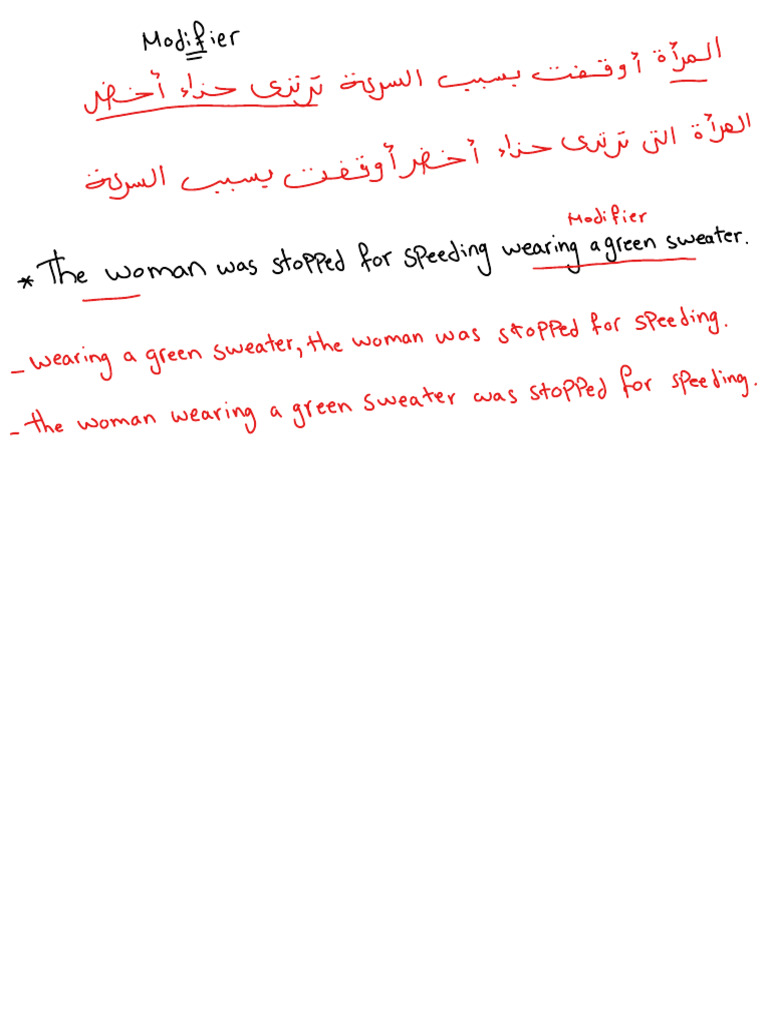 Modifier
المرأة أوقفت بسبب السرعة ترتدى حذاء أخضر
المرأة التى ترتدى حذاء أخضر أوقفت بسبب السرعة
Modifier
* The woman was stopped for speeding wearing a green sweater.
- wearing a green sweater, the woman was stopped for speeding.
- the woman wearing a green sweater was stopped for speeding.